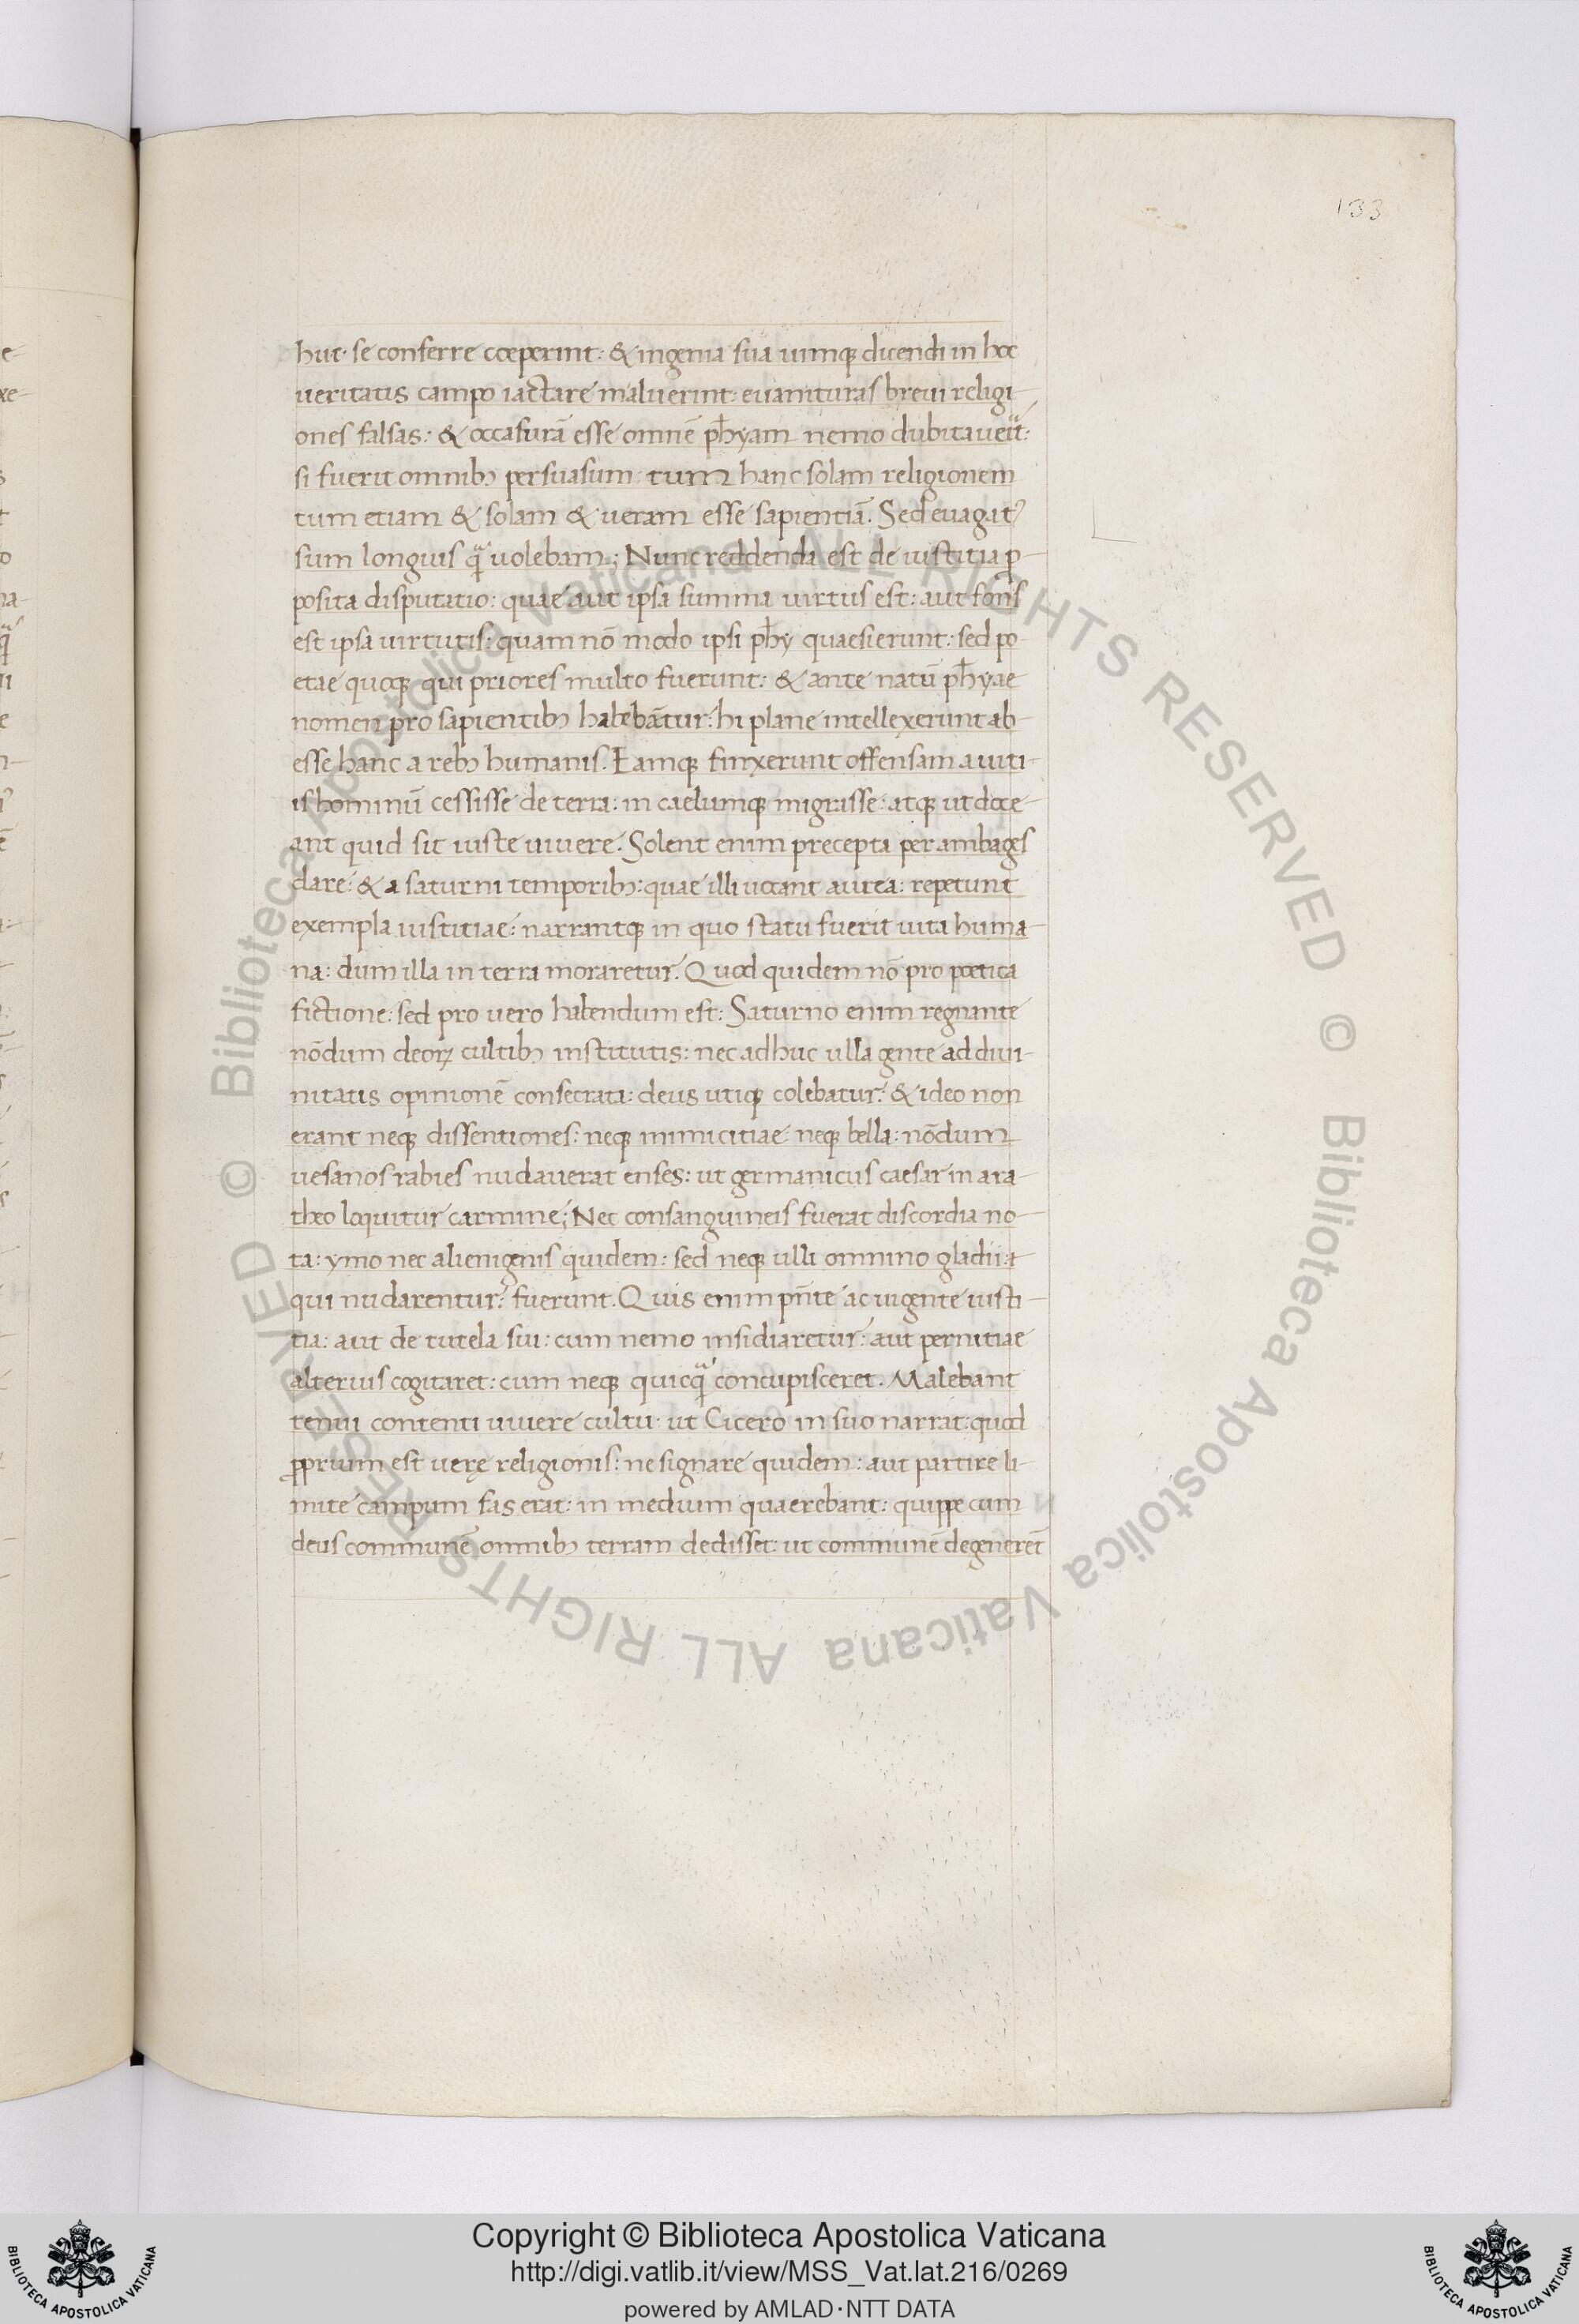 133
huc. se conferre coeperint: & ingenia sua uimq; dicendi in hoc
ueritatis campo iactare maluerint: euanituras breui religi-
ones falsas: & occasurã esse omnẽ ph̃yam nemo dubitaueit:
si fuerit omnib; persuasum tum hanc solam religionem
tum etiam & solam & ueram esse sapientiã. Sed euagat᾽
sum longius qͣ uolebam; Nunc reddenda est de iustitia ꝓ-
posita disputatio: quae aut ipsa summa uirtus est: aut fons
est ipsa uirtutis: quam nõ modo ipsi ph̃y quaesierunt: sed po-
etae quoq; qui priores multo fuerunt: & ante natũ ph̃yae
nomen pro sapientib; habebãtur: hi plane intellexerunt ab-
esse hanc a reb; humanis. Eamq; finxerunt offensam a uiti-
is hominũ cessisse de terra: in caelumq; migrasse: atq; ut doce-
ant quid sit iuste uiuere. Solent enim precepta per ambages
dare: & a saturni temporib;: quae illi uocant aurea: repetunt
exempla iustitiae: narrantq; in quo statu fuerit uita huma-
na: dum illa in terra moraretur. Quod quidem nõ pro poetica
fictione: sed pro uero habendum est: Saturno enim regnante
nõdum deoꝝ cultib; institutis: nec adhuc ulla gente ad diui-
nitatis opinionẽ consecrata: deus utiq; colebatur: & ideo non
erant neq; dissentiones: neq; inimicitiae: neq; bella: nõdum
uesanos rabies nudauerat enses: ut germanicus caesar in ara-
theo loquitur carmine; Nec consanguineis fuerat discordia no-
ta: ymo nec alienigenis quidem: sed neq; ulli omnino gladii:
qui nudarentur: fuerunt. Quis enim pñte ac uigente iusti-
tia: aut de tutela sui: cum nemo insidiaretur: aut pernitiae
alterius cogitaret: cum neq; quicqͣ concupisceret. Malebant
tenui contenti uiuere cultu: ut Cicero in suo narrat: quod
ꝓprium est uerę religionis: ne signare quidem: aut partire li-
mite campum fas erat: in medium quaerebant: quippe cum
deus communẽ omnib; terram dedisset: ut communẽ degenerẽt
© Biblioteca Apostolica Vaticana ALL RIGHTS RESERVED
© Biblioteca Apostolica Vaticana ALL RIGHTS RESERVED
BIBLIOTECA APOSTOLICA VATICANA
Copyright © Biblioteca Apostolica Vaticana
http://digi.vatlib.it/view/MSS_Vat.lat.216/0269
powered by AMLAD·NTT DATA
BIBLIOTECA APOSTOLICA VATICANA